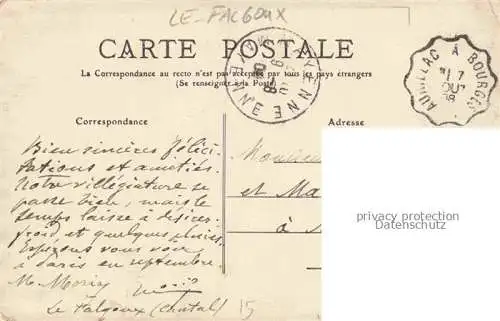 LE-FALGOUX
CARTE POSTALE
La Correspondance au recto n'est pas acceptée par tous les pays étrangers
(Se renseigner à la Poste)
AURILLAC A BOURGES
17
08
MAYENNE MAYENNE
Correspondance
Adresse
Bien sincères félici
tations et amitiés.
Notre villégiature se
passe bien, mais le
temps laisse à désirer
froid et quelques pluies.
Espérons vous voir
à Paris en septembre.
M.
Le Falgoux (Cantal)
15
Monsieur
et Ma
à
privacy protection
Datenschutz